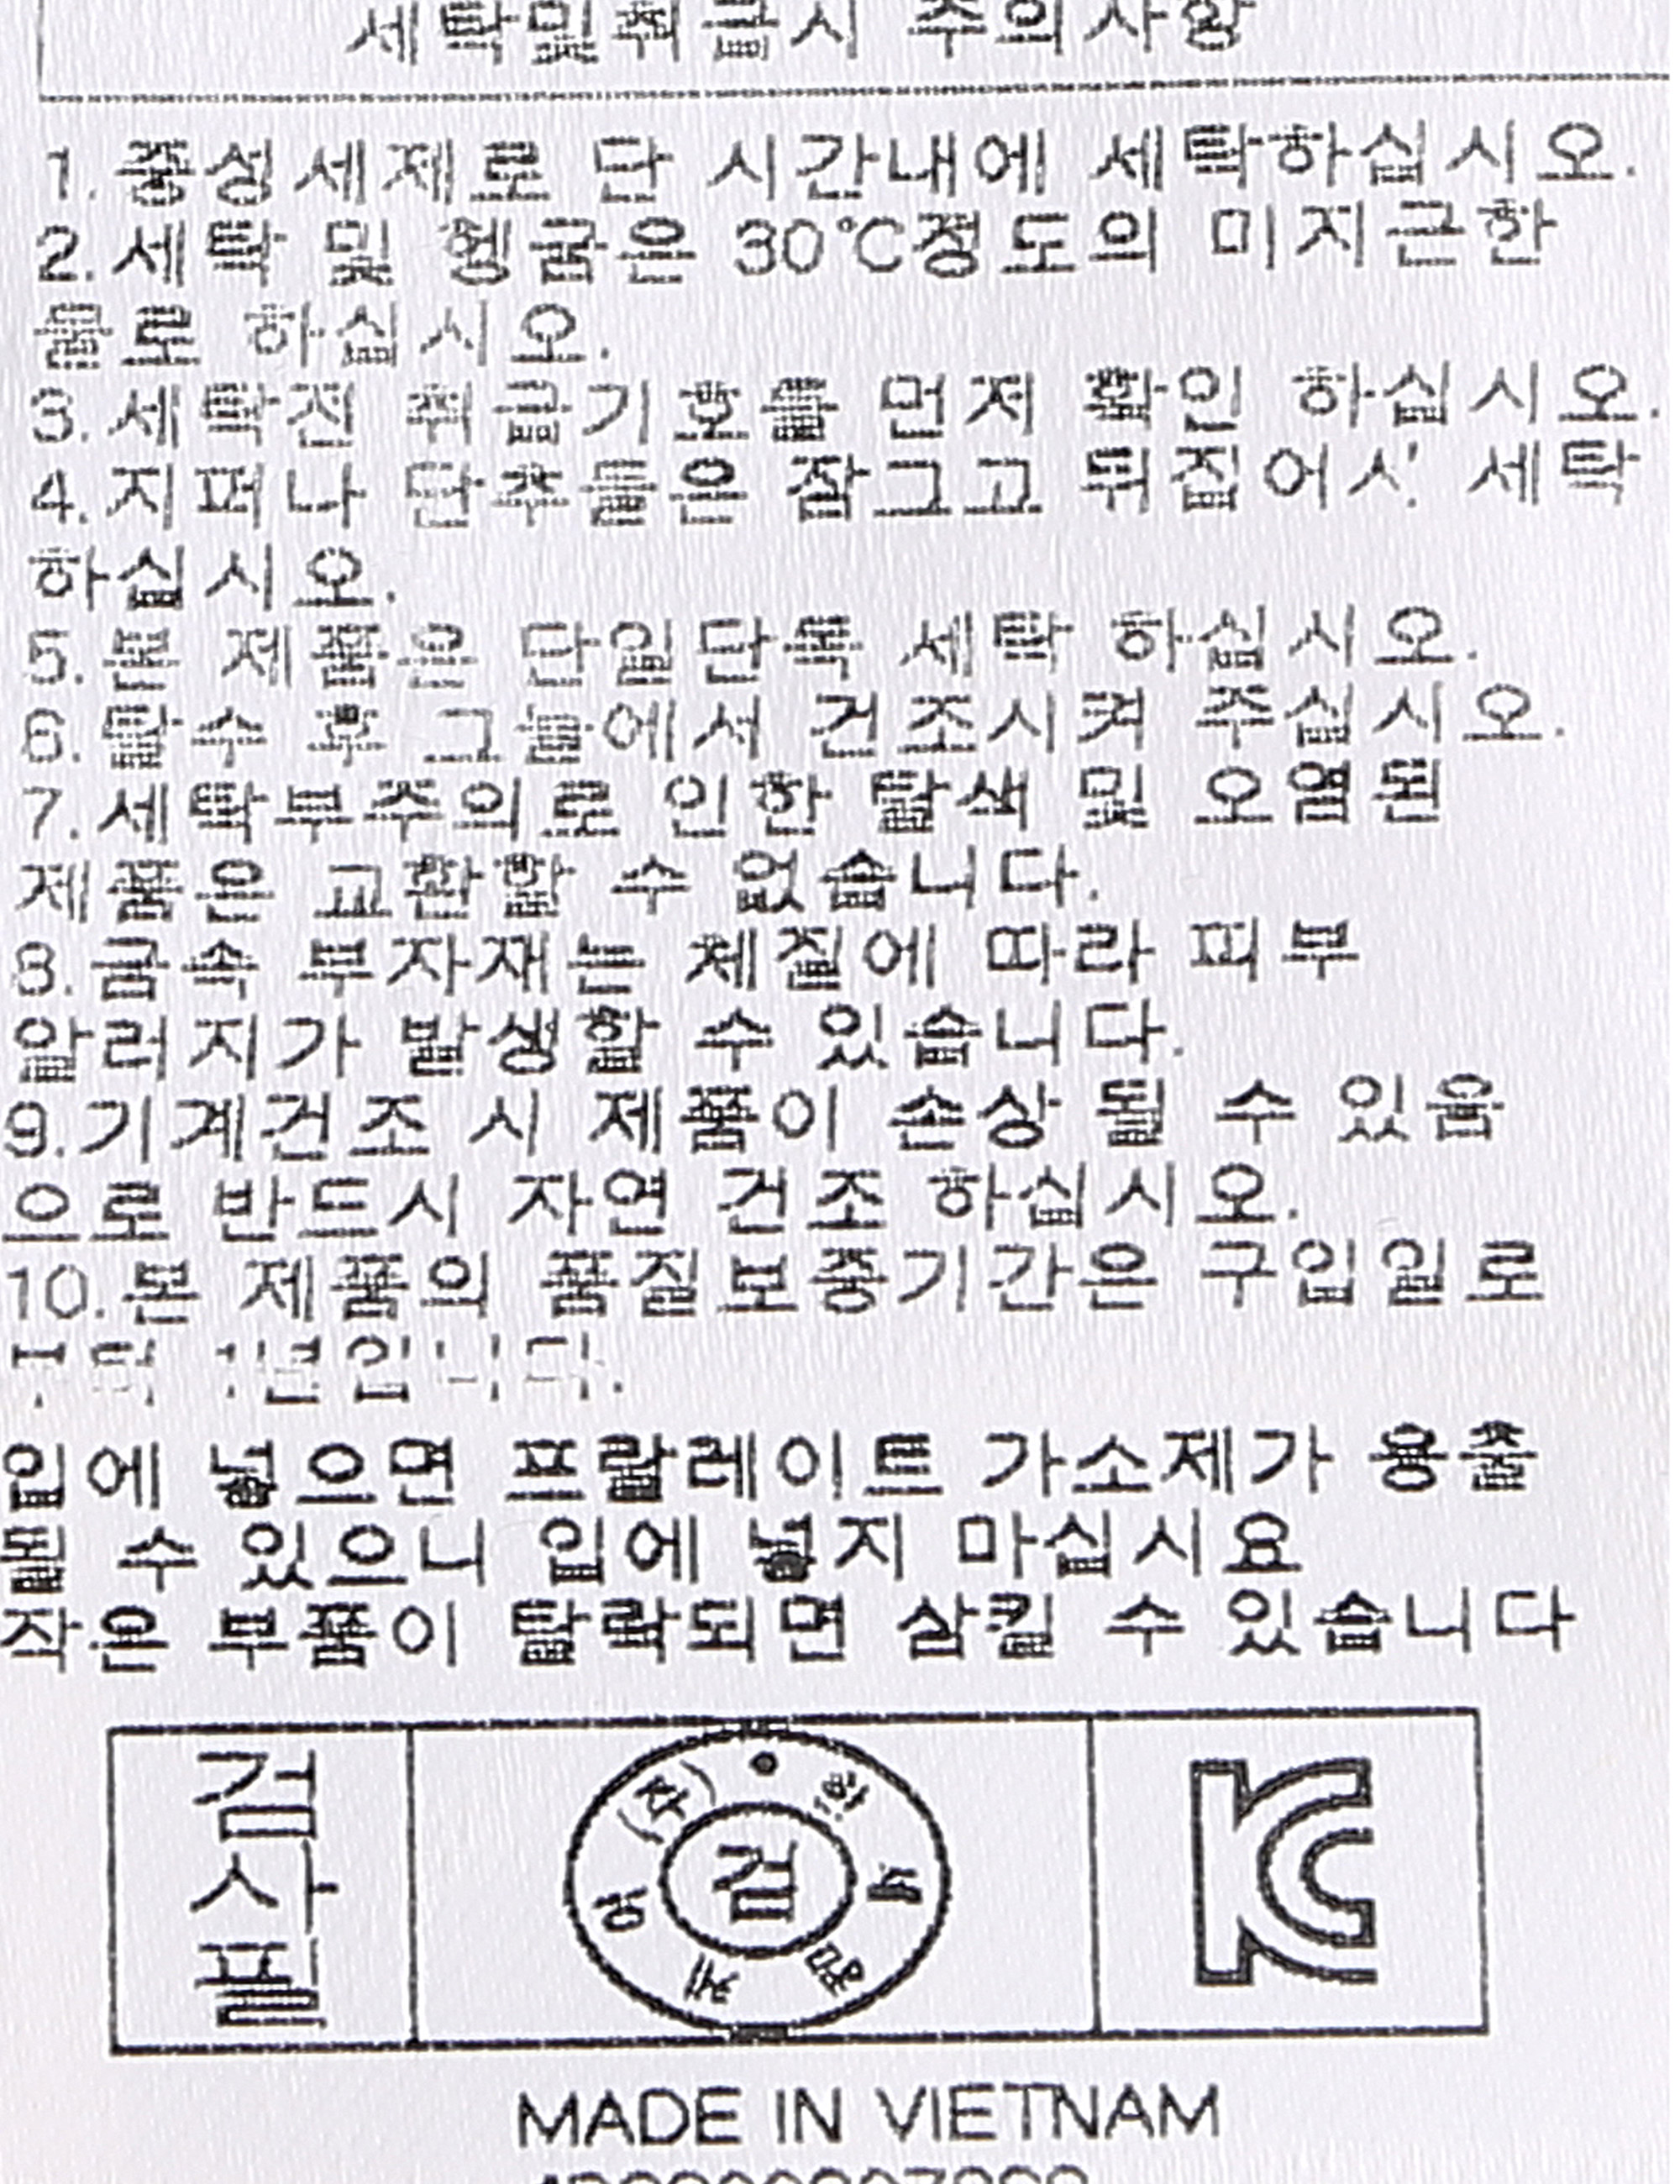 세탁및취급시 주의사항
1.중성세제로 단 시간내에 세탁하십시오.
2.세탁 및 헹굼은 30°C정도의 미지근한
물로 하십시오.
3.세탁전 취급기호를 먼저 확인 하십시오.
4.지퍼나 단추들은 잠그고 뒤집어서 세탁
하십시오.
5.본 제품은 단일단독 세탁 하십시오.
6.탈수 후 그늘에서 건조시켜 주십시오.
7.세탁부주의로 인한 탈색 및 오염된
제품은 교환할 수 없습니다.
8.금속 부자재는 체질에 따라 피부
알러지가 발생할 수 있습니다.
9.기계건조 시 제품이 손상 될 수 있음
으로 반드시 자연 건조 하십시오.
10.본 제품의 품질보증기간은 구입일로
부터 1년입니다.
입에 넣으면 프탈레이트 가소제가 용출
될 수 있으니 입에 넣지 마십시요
작은 부품이 탈락되면 삼킬 수 있습니다
검
사
필
검
KC
MADE IN VIETNAM